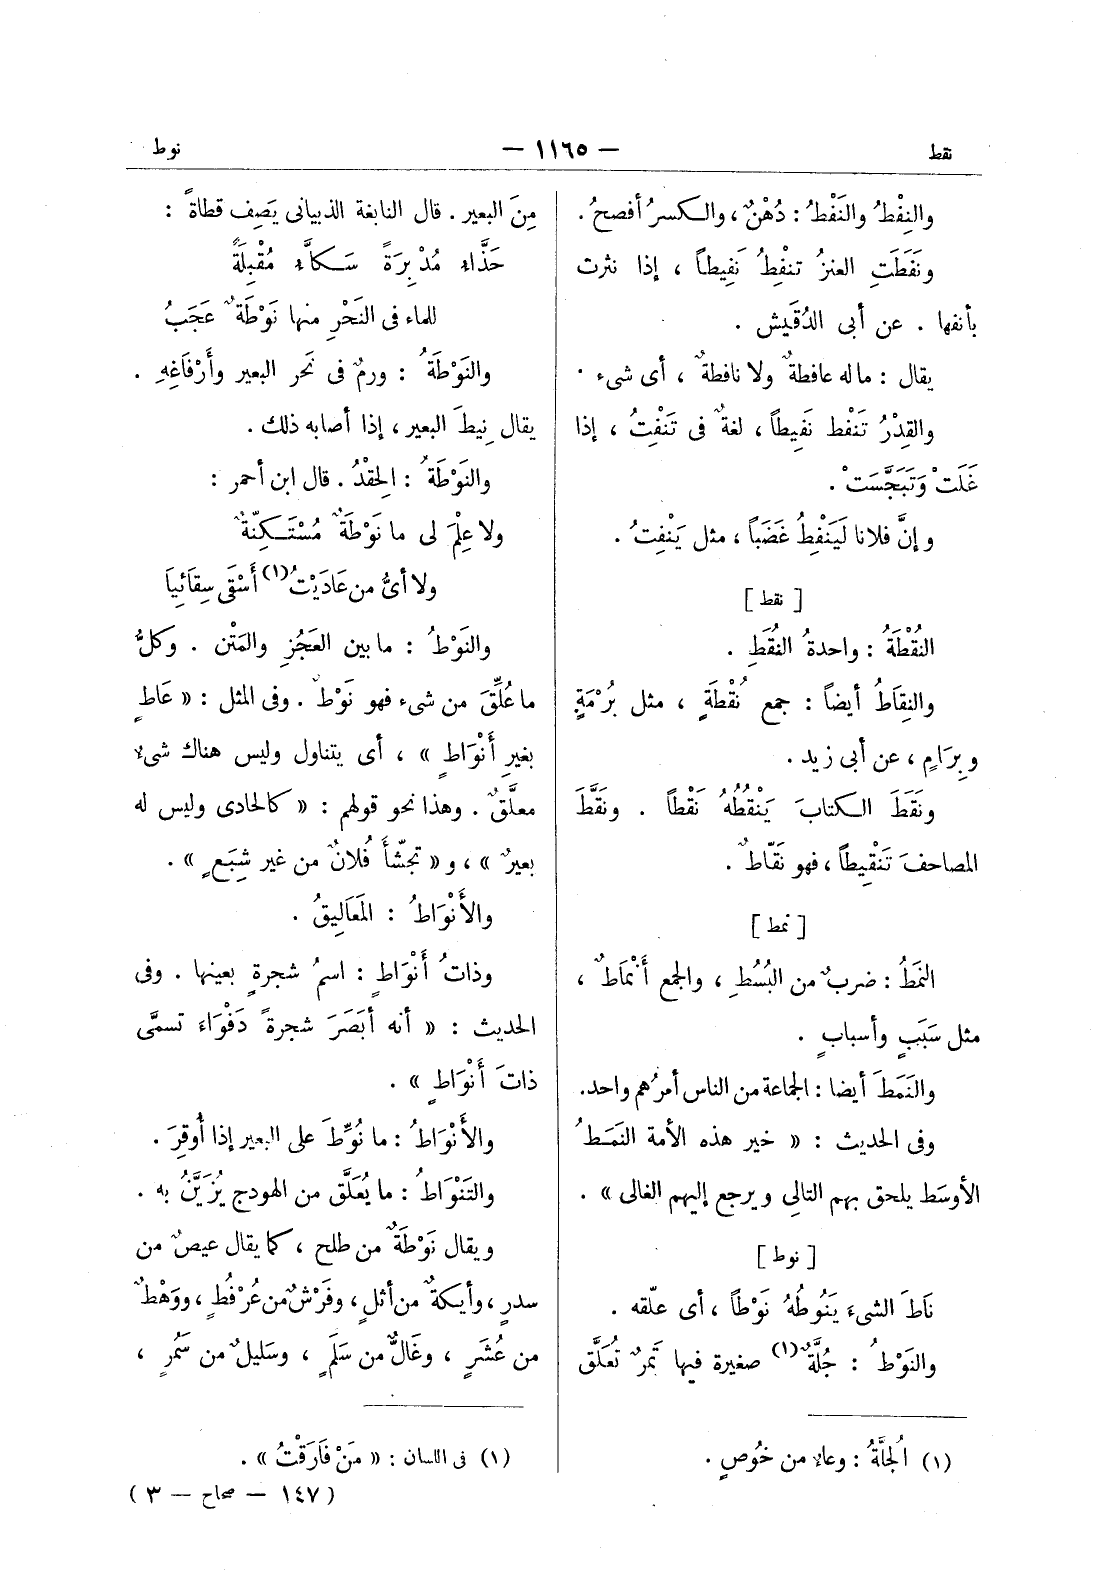 نقط — ١١٦٥ — نوط
والنِفْطُ والنَفْطُ : دُهْنٌ ، والكسرُ أفصحُ .
ونَفَطَتِ العنزُ تنفِطُ نَفِيطاً ، إذا نثرت
بأنفها . عن أبى الدُقَيش .
يقال : ماله عافطةٌ ولا نافطةٌ ، أى شىء .
والقِدْرُ تَنْفط نَفِيطاً ، لغةٌ فى تَنْفِتُ ، إذا
غَلَتْ وَتَبَجَّسَتْ .
وإنَّ فلانا لَيَنْفِطُ غَضَباً ، مثل يَنْفِتُ .
[ نقط ]
النُقْطَةُ : واحدةُ النُقَطِ .
والنِقَاطُ أيضاً : جمع نُقْطَةٍ ، مثل بُرْمَةٍ
وبِرَامٍ ، عن أبى زيد .
ونَقَطَ الكتابَ يَنْقُطُهُ نَقْطاً . ونَقَّطَ
المصاحفَ تَنْقِيطاً ، فهو نَقّاطٌ .
[ نمط ]
النَمَطُ : ضربٌ من البُسُطِ ، والجمع أَنْمَاطٌ ،
مثل سَبَبٍ وأسبابٍ .
والنَمَطَ أيضا : الجماعة من الناس أمرُهم واحد .
وفى الحديث : « خير هذه الأمة النَمَطُ
الأوسَط يلحق بهم التالى ويرجع إليهم الغالى » .
[ نوط ]
نَاطَ الشىءَ يَنُوطُهُ نَوْطاً ، أى علّقه .
والنَوْطُ : جُلَّةٌ (١) صغيرة فيها تَمرٌ تُعَلَّق
(١) الُجلَّةُ : وعاء من خُوصٍ .
مِنَ البعير . قال النابغة الذبيانى يَصِف قطاةً :
حَذَّاء مُدْبِرَةً سَكاَّء مُقْبِلَةً
للماء فى النَحْرِ منها نَوْطَةٌ عَجَبُ
والنَوْطَةُ : ورمٌ فى نَحر البعير وأَرْفَاغِهِ .
يقال نِيطَ البعير ، إذا أصابه ذلك .
والنَوْطَةُ : الحِقْدُ . قال ابن أحمر :
ولا عِلْمَ لى ما نَوْطَةٌ مُسْتَكِنّةٌ
ولا أىُّ من عَادَيْتُ (١) أَسْقَى سِقَائِياَ
والنَوْطُ : ما بين العَجُزِ والمَتْن . وكلُّ
ما عُلِّقَ من شىء فهو نَوْطٌ . وفى المثل : « عَاطٍ
بغيرِ أَنْوَاطٍ » ، أى يتناول وليس هناك شىء
معلَّقٌ . وهذا نحو قولهم : « كالحادى وليس له
بعيرٌ » ، و « تجشّأَ فُلانٌ من غير شِبَعٍ » .
والأَنْوَاطُ : المَعَاليقُ .
وذاتُ أَنْوَاطٍ : اسمُ شجرةٍ بعينها . وفى
الحديث : « أنه أبَصَرَ شجرةً دَفْوَاءَ تسمَّى
ذاتَ أَنْوَاطٍ » .
والأَنْوَاطُ : ما نُوِّطَ على البعير إذا أُوقِرَ .
والتَنْوَاطُ : ما يُعَلَّق من الهودج يُزَيَّنُ به .
ويقال نَوْطَةٌ من طلح ، كما يقال عيصٌ من
سدرٍ ، وأيكةٌ من أثلٍ ، وفَرْشٌ من عُرْفُطٍ ، ووَهْطٌ
من عُشَرٍ ، وغَالٌّ من سَلَمٍ ، وسَليلٌ من سَمُرٍ ،
(١) فى اللسان : « مَنْ فَارَقْتُ » .
( ١٤٧ — صحاح — ٣ )